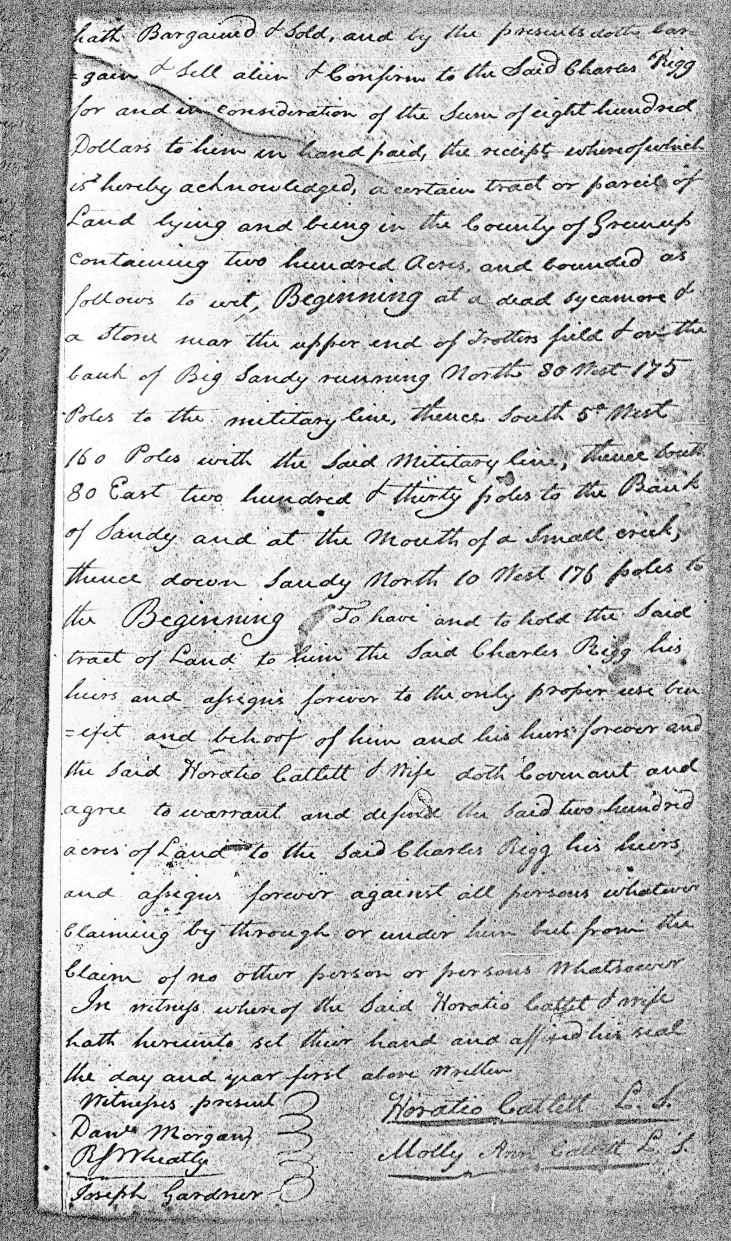 hath Bargained & Sold, and by the presents doth bar=
=gain & Sell alien & Confirm to the Said Charles Rigg
for and in consideration of the Sum of eight hundred
Dollars to him in hand paid, the receipt whereof which
is hereby acknowledged, a certain tract or parcel of
Land lying and being in the County of Greenup
Containing two hundred Acres, and bounded as
follows to wit, Beginning at a dead Sycamore &
a Stone near the upper end of Trotters field & on the
bank of Big Sandy running North 80 West 175
Poles to the military line, thence South 5° West
160 Poles with the Said Military line, thence South
80 East two hundred & thirty poles to the Bank
of Sandy and at the Mouth of a Small creek,
thence down Sandy North 10 West 176 poles to
the Beginning To have and to hold the Said
tract of Land to him the Said Charles Rigg his
heirs and assigns forever to the only proper use ben
=efit and behoof of him and his heirs forever and
the Said Horatio Catlett & Wife doth Covenant and
agree to warrant and defend the Said two hundred
acres of Land to the Said Charles Rigg his heirs
and assigns forever against all persons whatever
Claiming by through or under him but from the
Claim of no other person or persons Whatsoever
In witness whereof the Said Horatio Catlett & wife
hath hereunto set their hand and affixed his seal
the day and year first above Written
Witnesses present
Horatio Catlett L. S.
Danl Morgan
Molly Ann Catlett L. S.
RJ Wheatly
Joseph Gardner